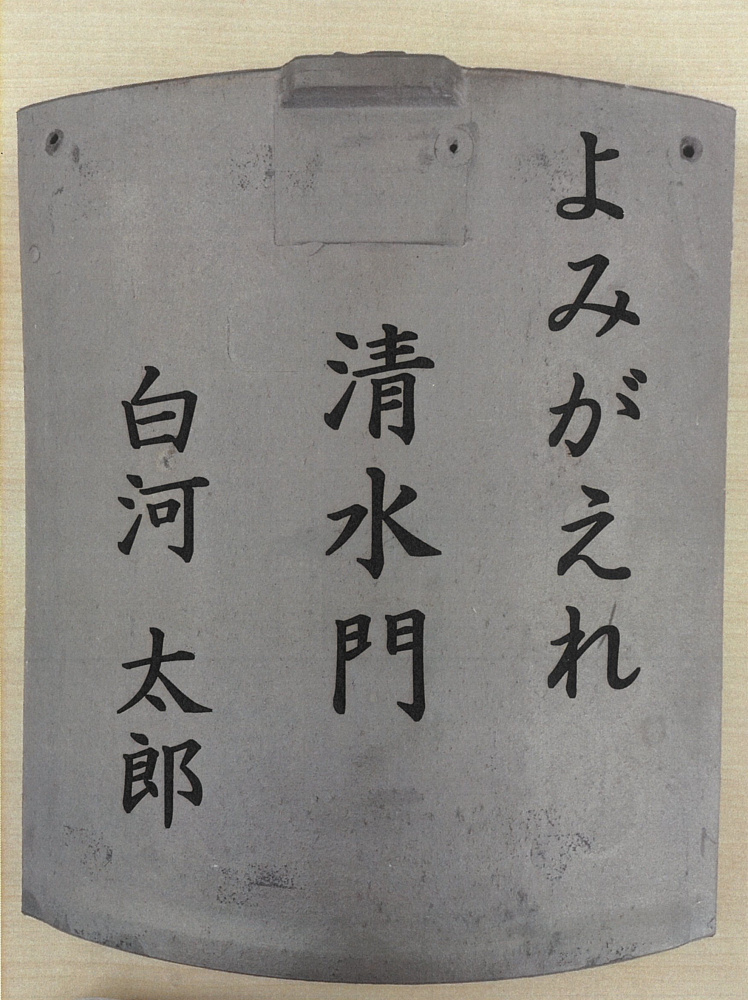 よみがえれ
清水門
白河 太郎